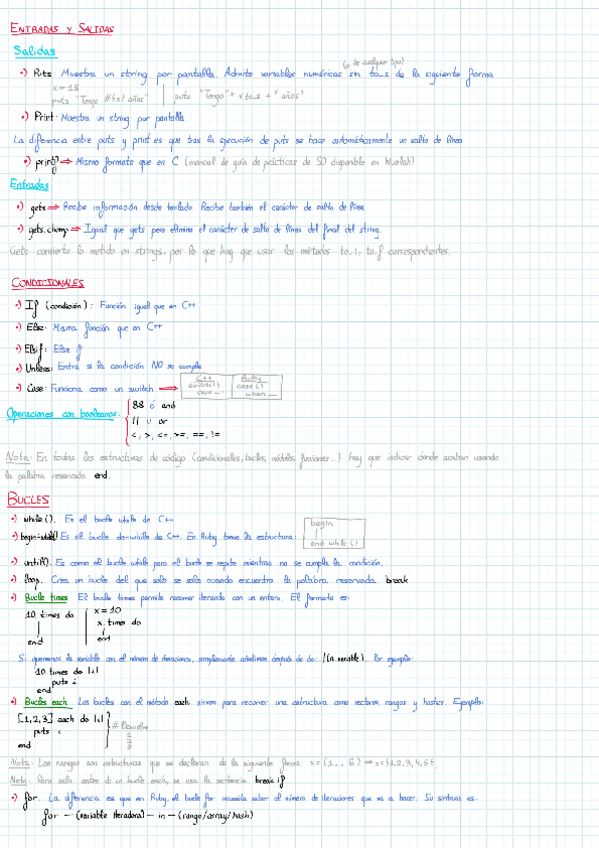 ENTRADAS Y SALIDAS
Salidas
•) Puts: Muestra un string por pantalla. Admite variables numéricas sin to_s de la siguiente forma (o de cualquier tipo)
x = 18
puts "Tengo #{x} años" | puts "Tengo" + x.to_s + " años"
•) Print: Muestra un string por pantalla
La diferencia entre puts y print es que tras la ejecución de puts se hace automáticamente un salto de línea
•) printf ⇒ Mismo formato que en C (manual de guía de prácticas de SO disponible en Wuolah)
Entradas
•) gets ⇒ Recibe información desde teclado. Recibe también el carácter de salto de línea
•) gets.chomp ⇒ Igual que gets pero elimina el carácter de salto de línea del final del string.
Gets convierte lo metido en strings, por lo que hay que usar los métodos to_i, to_f correspondientes.
CONDICIONALES
•) If (condición): Función igual que en C++
•) Else: Misma función que en C++
•) Elsif: Else if
•) Unless: Entra si la condición NO se cumple
•) Case: Funciona como un switch ⇒
C++ | Ruby
switch() | case ()
case _ | when _
Operaciones con booleanos:
&& ó and
|| ú or
<, >, <=, >=, ==, !=
Nota: En todas las estructuras de código (condicionales, bucles, módulos, funciones...) hay que indicar dónde acaban usando
la palabra reservada end.
BUCLES
•) while(). Es el bucle while de C++
•) begin-while() Es el bucle do-while de C++. En Ruby tiene la estructura:
begin
end while ()
•) until(). Es como el bucle while pero el bucle se repite mientras no se cumpla la condición.
•) loop. Crea un bucle del que solo se sale cuando encuentra la palabra reservada break
•) Bucle times El bucle times permite recorrer iterando con un entero. El formato es:
10.times do | x = 10
x.times do
end | end
Si queremos la variable con el número de iteraciones, simplemente añadimos después de do: |(n. variable)|. Por ejemplo:
10.times do |i|
puts i
end
•) Bucles each. Los bucles con el método each sirven para recorrer una estructura como vectores, rangos y hashes. Ejemplo:
[1,2,3] each do |i|
puts i
end
# Devuelve
1
2
3
Nota: Los rangos son estructuras que se declaran de la siguiente forma: x = (1..6) ⇒ x={1,2,3,4,5,6}.
Nota: Para salir antes de un bucle each, se usa la sentencia break if
•) for. La diferencia es que en Ruby, el bucle for necesita saber el número de iteraciones que va a hacer. Su sintaxis es
for - (variable iteradora) - in - (range/array/hash)